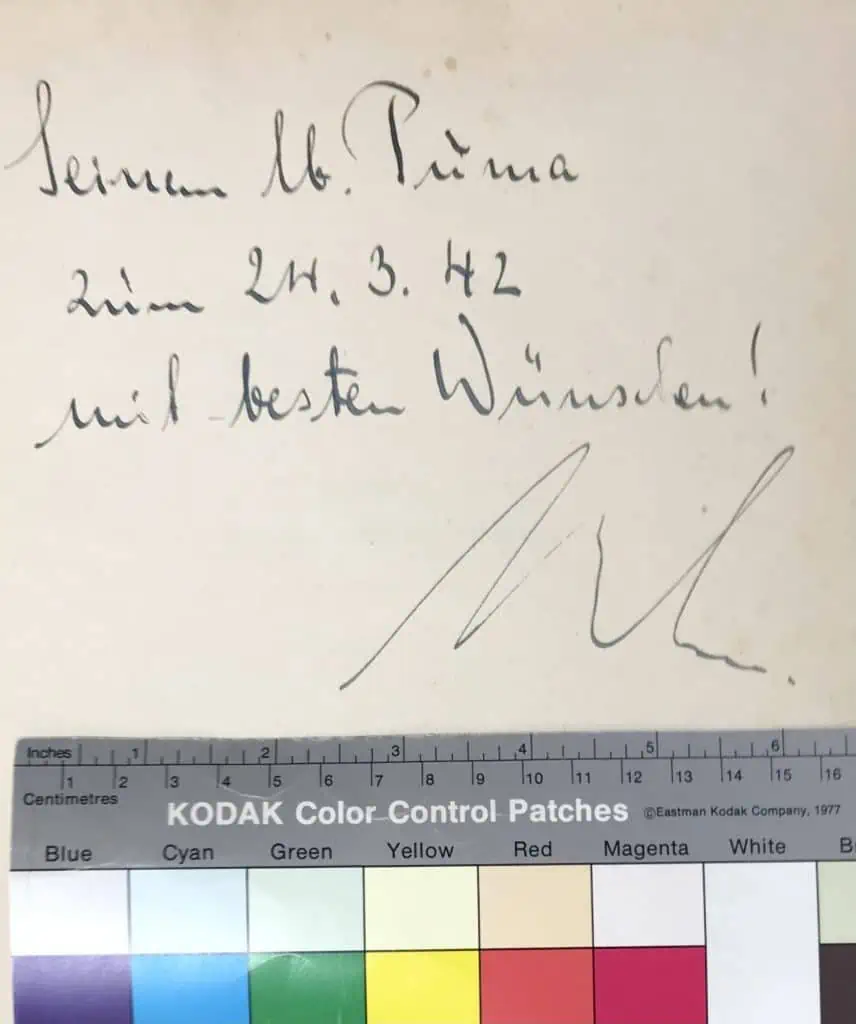 Seinem lb. Puma
zum 24. 3. 42
mit besten Wünschen!
Inches 1 2 3 4 5 6
1 2 3 4 5 6 7 8 9 10 11 12 13 14 15 16
Centimetres
KODAK Color Control Patches ©Eastman Kodak Company, 1977
Blue Cyan Green Yellow Red Magenta White